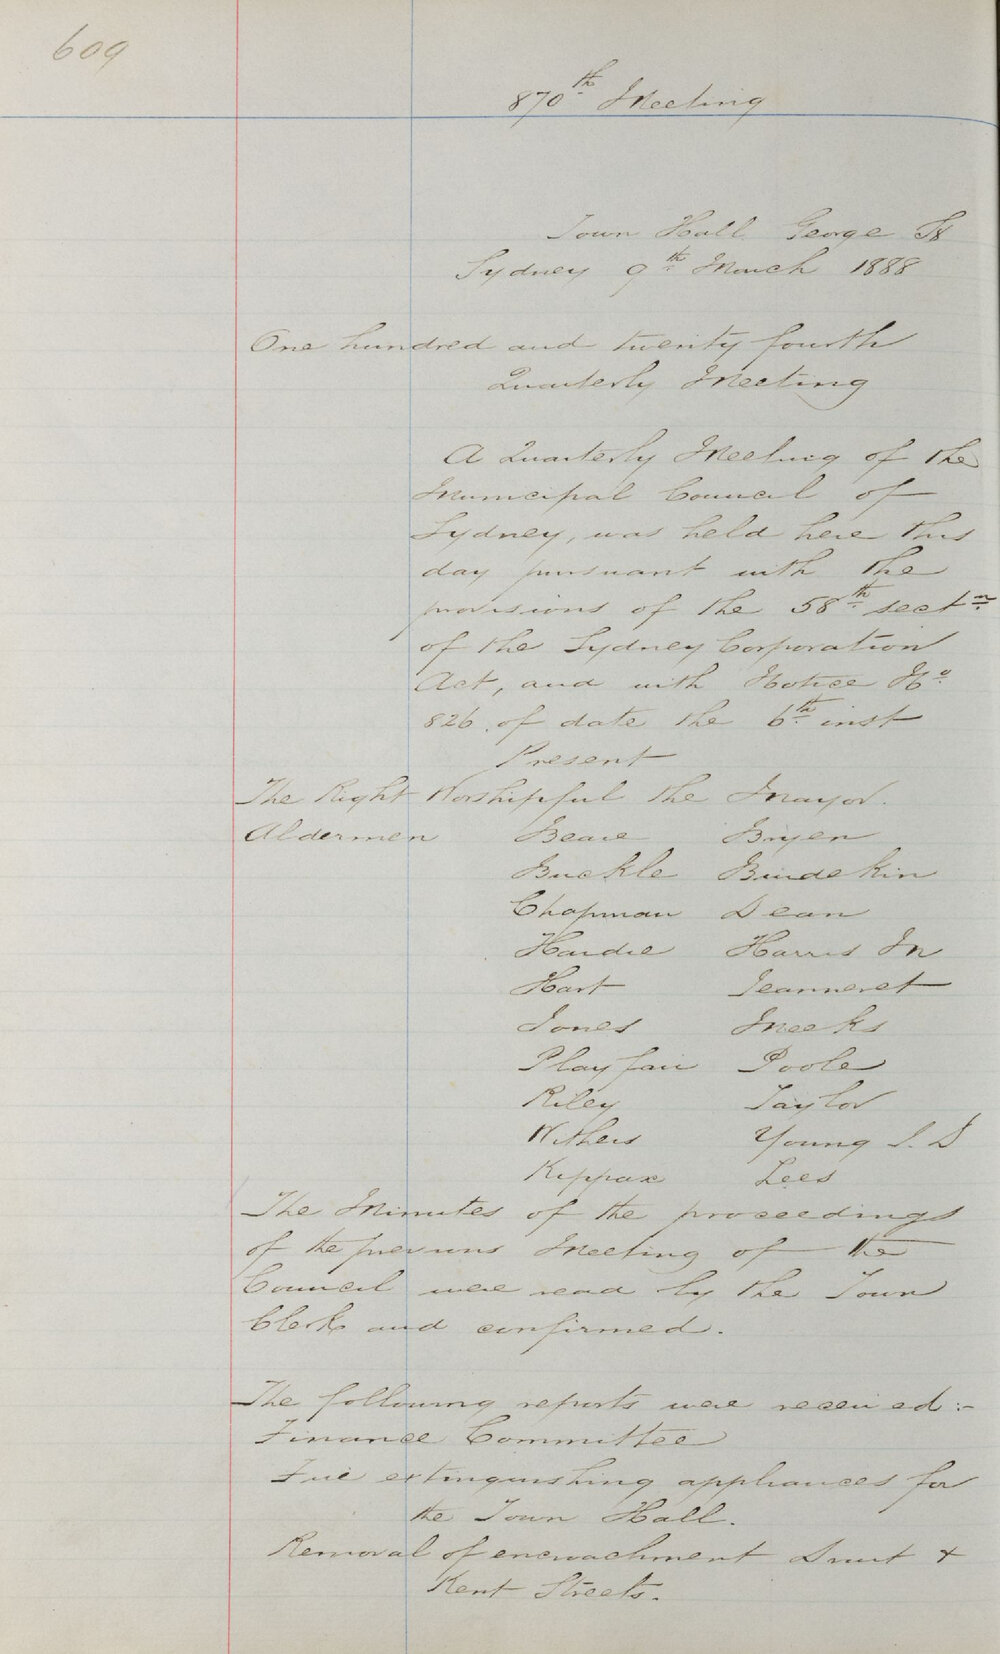 609
870th Meeting
Town Hall George St
Sydney 9th March 1888
One hundred and twenty fourth
Quarterly Meeting
A Quarterly Meeting of the
Municipal Council of
Sydney, was held here this
day pursuant with the
provisions of the 58th sectn
of the Sydney Corporation
Act, and with Notice No
826 of date the 6th inst
Present
The Right Worshipful the Mayor.
Aldermen Beare Bryen
Buckle Burdekin
Chapman Dean
Hardie Harris Jn
Hart Jeanneret
Jones Meeks
Playfair Poole
Riley Taylor
Withers Young J. D
Kippax Lees
The Minutes of the proceedings
of the previous Meeting of the
Council were read by the Town
Clerk and confirmed.
The following reports were received:-
Finance Committee
Fire extinguishing appliances for
the Town Hall.
Removal of encroachment Druitt &
Kent Streets.